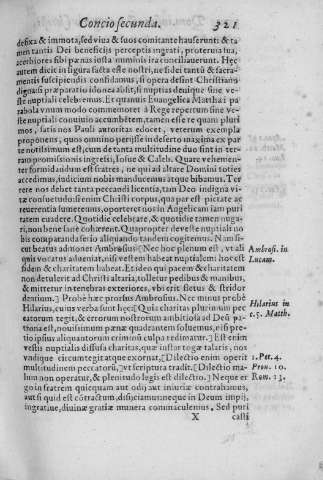 Concio secunda. 321
defixa & immota, sed viua & suos comitante hauserunt: & ta
men tantis Dei beneficijs perceptis ingrati, proterua sua,
acerbiores sibi pœnas iusta numinis ira conciliauerunt. Hęc
autem dicit in figura facta esse nostri, ne fidei tantũ & sacra-
mentis suscipiendis considamus, si opera desint Christianis
digna: si præparatio idonea absit, si nuptias deuique sine ve-
ste nuptiali celebremus. Et quamuis Euangelica Matthæi pa
rabola vnum modo commemoret à Rege repertum sine ve-
ste nuptiali conuiuio accumbẽtem, tamen esse re quam pluri
mos, satis nos Pauli autoritas edocet, veterum exempla
proponens, quo omnino perijsse in deserto maxima ex par
te notissimum est, cum de tanta multitudine duo sint in ter-
ram promissionis ingressi, Iosue & Caleb. Quare vehemen-
ter formidandum est fratres, ne qui ad altare Domini toties
accedimus, iudicium nobis manducemus itque bibamus. Ter
rere nos debet tanta peccandi licentia, tam Deo indigna vi-
tæ consuetudo: si enim Christi corpus, qua par est pictate ac
reuerentia sumeremus, oporteret nos in Angelicam iam puri
tatem euadere. Quotidie celebrare, & quotidie tamen nuga-
ri, non bene sanè cohærent. Quapropter deveste nuptiali no
bis comparanda serio aliquando tandem cogitemus. Nam si-
cut beatus aditonet Ambrosius [Nec hoc plenum est, vt ali
quis vocatus adueniat, nisi vestem habeat nuptialem: hoc est
fidem & charitatem habeat. Et ideo qui pacem & charitatem
non detulerit ad Christi altaria, tolletur pedibus & manibus,
& mittetur in tenebras exteriores, vbi erit fletus & stridor
dentium.] Probè hæc prorsus Ambrosius. Nec minus probè
Hilarius, cuius verba sunt hęc: [Quia charitas plurimum pec
catorum tegit, & errorum nostrorum ambitiosa ad Deũ pa-
tiona est, nouissimum pœnæ quadrantem soluemus, nisi pre-
tio ipsius aliquantorum criminũ culpa redimatur.] Est enim
vestis nuptialis diffusa charitas, quæ instar togæ talaris, nos
vndique circumtegit atque exornat, [Dilectio enim operit
multitudinem peccatorũ,] vt scriptura tradit. [Dilectio ma-
lum non operatur, & plenitudo legis est dilectio.] Neque er
go in fratrem quicquam aut odij aut iniuriæ contrahamus,
aut si quid est cõtractum, disijciamus: neque in Deum impij,
ingratiue, diuinæ gratiæ munera commaculemus, Sed puri
X casti
Ambrosi. in
Lucam.
Hilarius in
c.5. Matth.
1. Pet. 4.
Prou. 10.
Rom. 13.